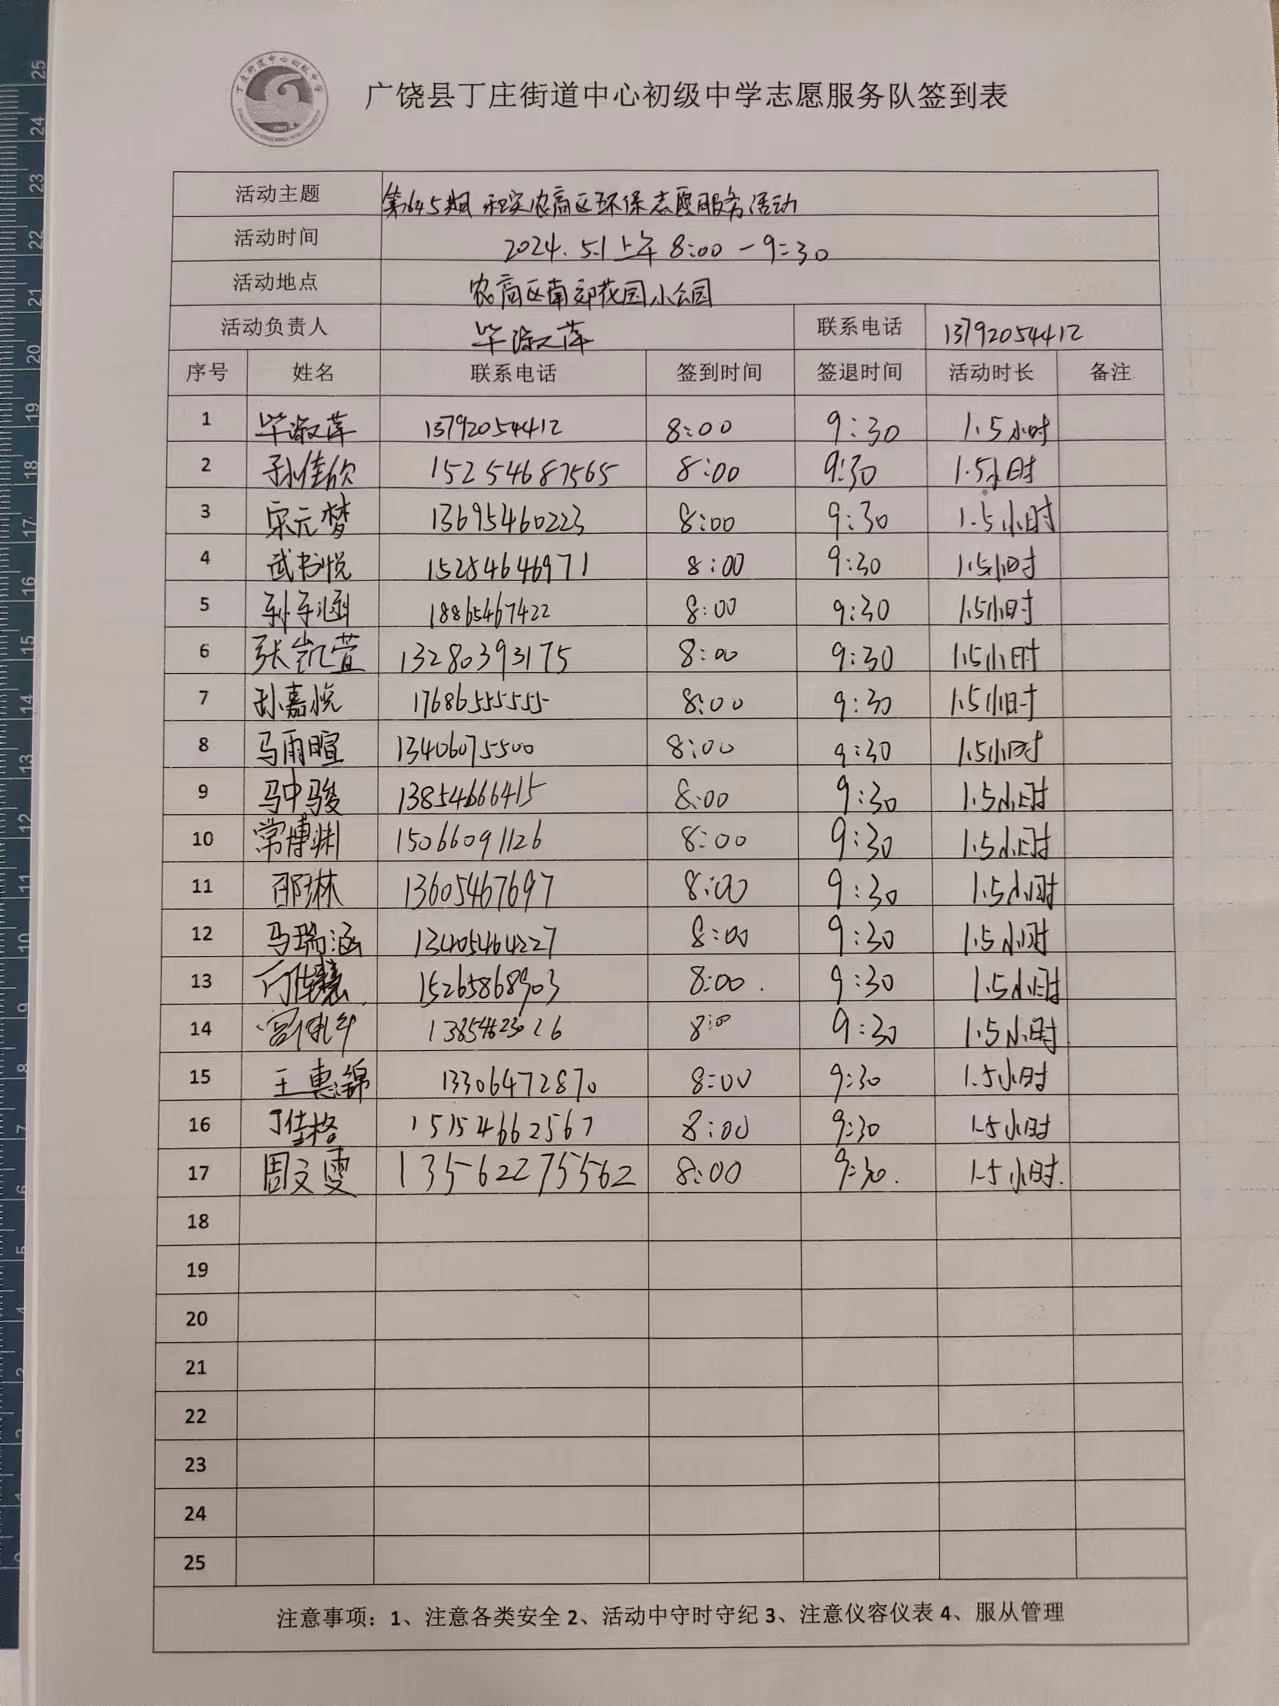 广饶县丁庄街道中心初级中学志愿服务队签到表
活动主题 第645期 和安农商区环保志愿服务活动
活动时间 2024.5.1上午 8:00-9:30
活动地点 农商区南郊花园小公园
活动负责人 毕淑萍 联系电话 13792054412
序号 姓名 联系电话 签到时间 签退时间 活动时长 备注
1 毕淑萍 13792054412 8:00 9:30 1.5小时
2 孙佳欣 15254687565 8:00 9:30 1.5小时
3 宋元梦 13695460223 8:00 9:30 1.5小时
4 武书悦 15254646971 8:00 9:30 1.5小时
5 孙子涵 18865467422 8:00 9:30 1.5小时
6 张凯萱 13280393175 8:00 9:30 1.5小时
7 孙嘉悦 17686555555 8:00 9:30 1.5小时
8 马雨暄 13406075500 8:00 9:30 1.5小时
9 马中骏 13854666415 8:00 9:30 1.5小时
10 常博渊 15066091126 8:00 9:30 1.5小时
11 邵琳 13605467697 8:00 9:30 1.5小时
12 马瑞涵 13405464227 8:00 9:30 1.5小时
13 15265868903 8:00. 9:30 1.5小时
14 13854623026 8:00 9:30 1.5小时
15 王惠锦 13306472870 8:00 9:30 1.5小时
16 丁佳格 15154662567 8:00 9:30 1.5小时
17 周文雯 13562275562 8:00 9:30. 1.5小时.
18
19
20
21
22
23
24
25
注意事项：1、注意各类安全 2、活动中守时守纪 3、注意仪容仪表 4、服从管理